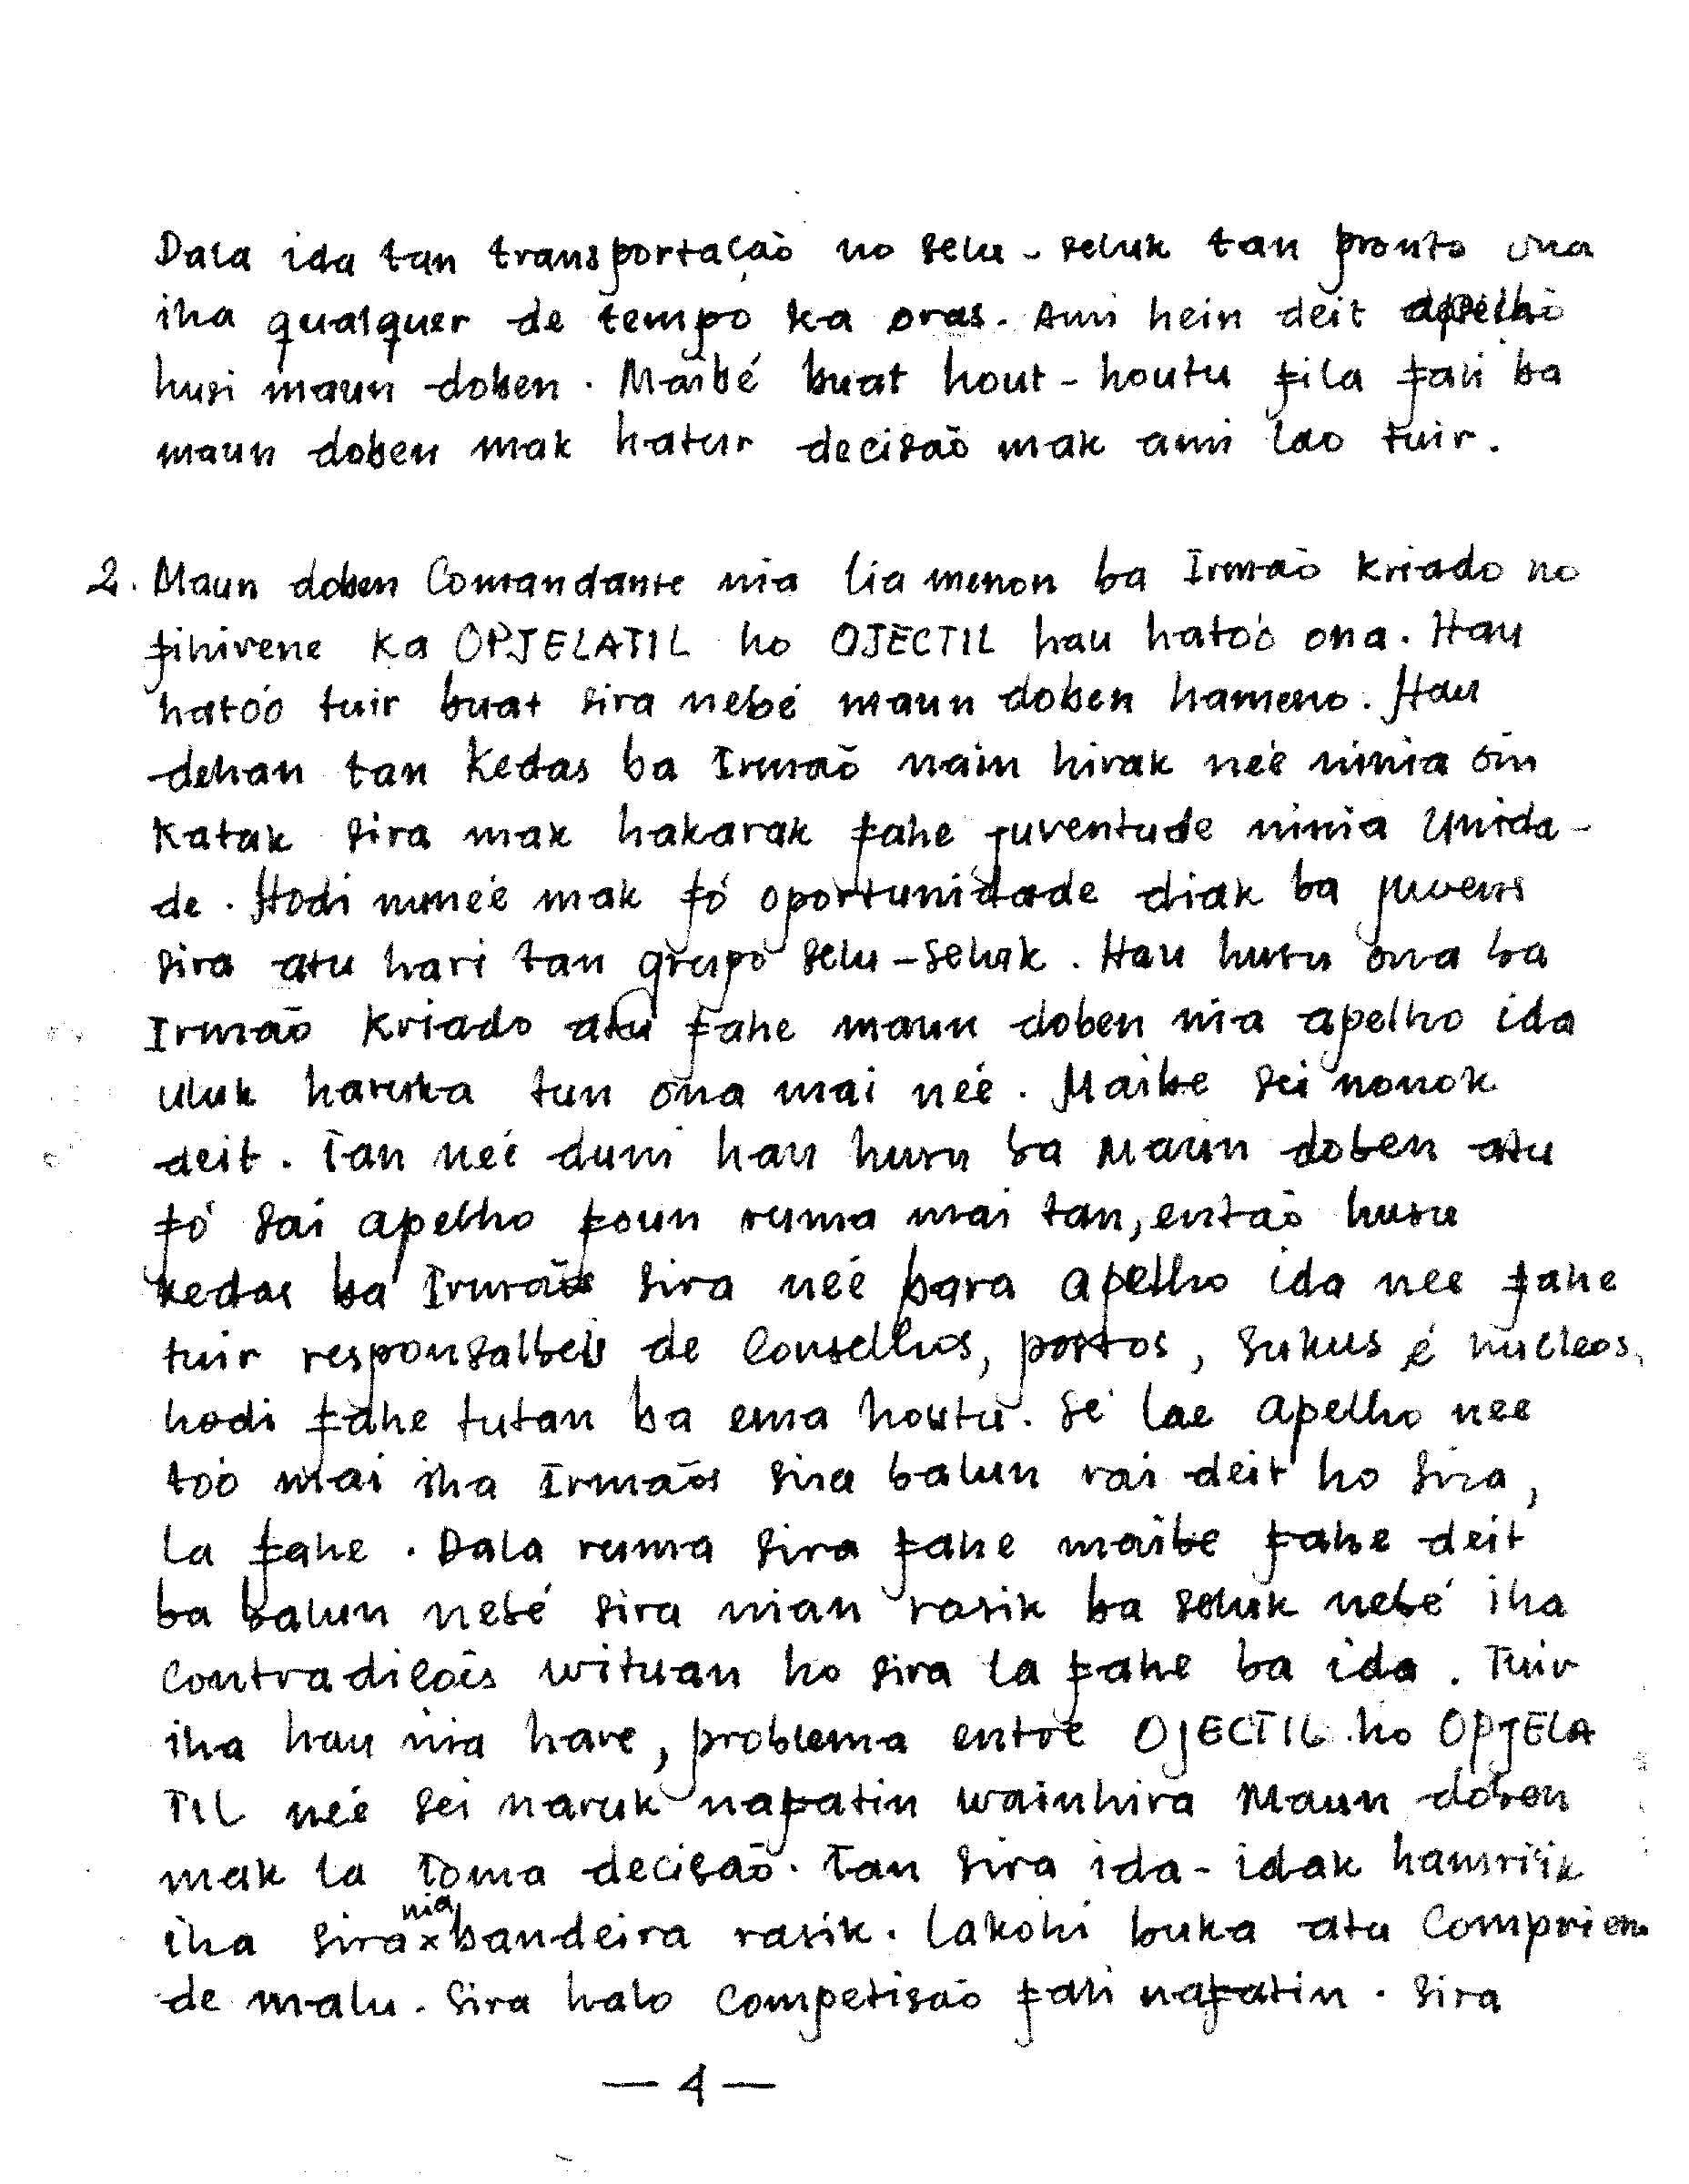 Dala ida tan transportação no selu-seluk tan pronto ona
iha qualquer de tempo ka oras. Ami hein deit apelho
husi maun doben. Maibé buat hout-houtu fila fali ba
maun doben mak hatur decisão mak ami lao tuir.
2. Maun doben Comandante nia lia menon ba Irmão Kriado no
fihirene ka OPJELATIL ho OJECTIL hau hatoó ona. Hau
hatoó tuir buat sira nebé maun doben hameno. Hau
dehan tan Kedas ba Irmão nain hirak neé ninia oin
Katak sira mak hakarak fahe juventude ninia Unida-
de. Hodi nuneé mak fó oportunidade diak ba juvens
sira atu hari tan grupo selu-seluk. Hau husu ona ba
Irmão Kriado atu fahe maun doben nia apelho ida
uluk haruka tun ona mai neé. Maibe sei nonok
deit. Tan neé duni hau husu ba Maun doben atu
fó sai apelho foun ruma mai tan, então husu
kedas ba Irmãos sira neé para apelho ida nee fahe
tuir responsalbeis de Conselhos, postos, sukus é nucleos,
hodi fahe tutan ba ema houtu. Se lae apelho nee
toó mai iha Irmãos sira balun rai deit ho sira,
la fahe. Dala ruma sira fahe maibe fahe deit
ba balun nebé sira nian rasik ba seluk nebé iha
Contradições wituan ho sira la fahe ba ida. Tuir
iha hau nia hare, problema entre OJECTIL ho OPJELA
TIL neé sei naruk nafatin wainhira Maun doben
mak la Toma decisão. Tan sira ida-idak hamriik
iha sira nia bandeira rasik. Lakohi buka atu Comprien
de malu. Sira halo Competisão fali nafatin. Sira
— 4 —